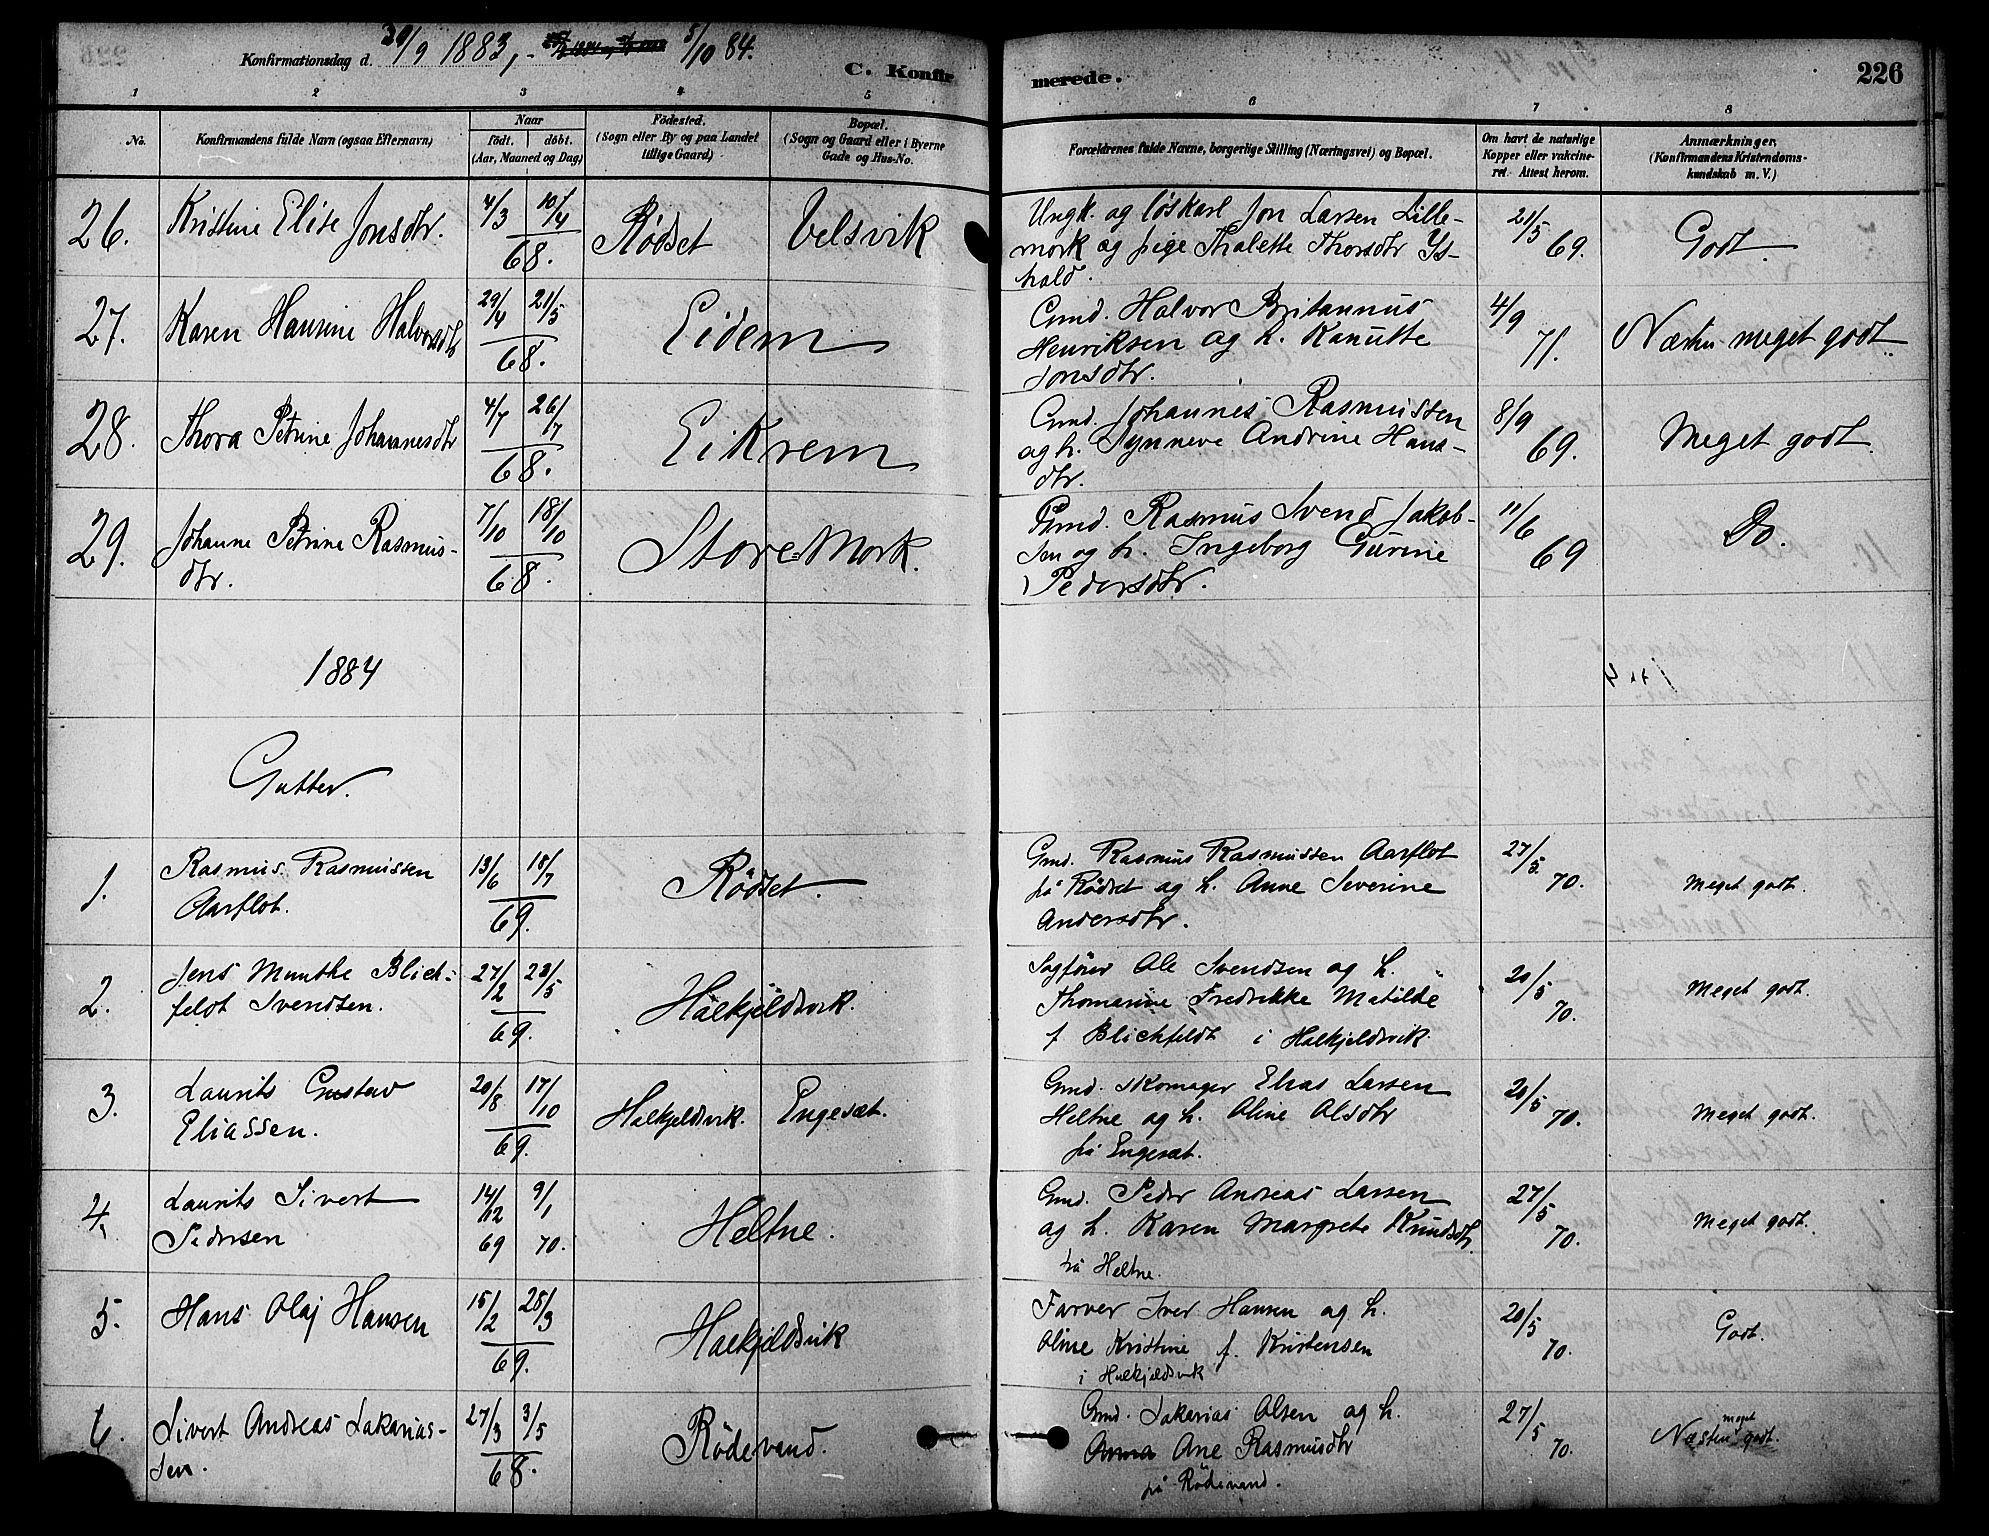 Konfirmationsdag d. 30/9 1883, - 5/10 84.
C. Konfirmerede.
226
1 2 3 4 5 6 7 8
No.
Konfirmandens fulde Navn (ogsaa Efternavn)
Naar
født. døbt.
(Aar, Maaned og Dag)
Fødested.
(Sogn eller By og paa Landet
tillige Gaard)
Bopæl.
(Sogn og Gaard eller i Byerne
Gade og Hus-No.
Forældrenes fulde Navne, borgerlige Stilling (Næringsvei) og Bopæl.
Om havt de naturlige
Kopper eller vakcine-
ret. Attest herom.
Anmærkninger,
(Konfirmandens Kristendoms-
kundskab m. V.)
26. Kristine Elise Jonsdtr. 4/3 10/4 68. Rödset Velsvik
Ungk. og löskarl Jon Larsen Lille-
mork og pige Thalette Thorsdtr Ys-
hold.
21/5 69. Godt.
27. Karen Hansine Halvorsdtr 29/4 21/5 68. Eidem
Gmd. Halvor Britannus
Henriksen og h. Kanutte
Jonsdtr.
4/9 71. Næsten meget godt.
28. Thora Petrine Johannesdtr 4/7 26/7 68. Eikrem
Gmd. Johannes Rasmussen
og h. Synneve Andrine Hans-
dtr.
8/9 69. Meget godt.
29. Johanne Petrine Rasmus-
dtr. 7/10 18/10 68. Store Mork.
Gmd. Rasmus Svend Jakob-
sen og h. Ingeborg Gurine
Pedersdtr.
11/6 69 Do.
1884
Gutter.
1. Rasmus Rasmussen
Aarflot. 13/6 18/7 69. Rödset.
Gmd. Rasmus Rasmussen Aarflot
på Rödset og h. Anne Severine
Andersdtr.
27/5 70. Meget godt.
2. Jens Munthe Blich-
feldt Svendsen. 27/2 23/5 69. Halkjeldsvik.
Sagförer Ole Svendsen og h.
Thomasine Fredrikke Matilde
f Blichfeldt i Halkjeldsvik.
20/5 70. Meget godt.
3. Laurits Gustav
Eliassen. 20/8 17/10 69. Halkjeldsvik. Engesæt.
Gmd. skomager Elias Larsen
Heltne og h. Oline Olsdtr
på Engesæt.
20/5 70. Meget godt.
4. Laurits Sivert
Pedersen 14/12 69 9/1 70. Heltne.
Gmd. Peder Andreas Larsen
og h. Karen Margrete Knudsdtr.
på Heltne.
27/5 70. Meget godt.
5. Hans Olaj Hansen 15/2 25/3 69. Halkjeldsvik
Farver Iver Hansen og h.
Oline Kristine f. Kristensen
i Halkjeldsvik
20/5 70. Godt.
6. Sivert Andreas Sakarias-
sen. 27/3 3/5 68. Rödevand.
Gmd. Sakarias Olsen og h.
Anna Ane Rasmusdtr
på Rödevand.
27/5 70. Næsten meget godt.